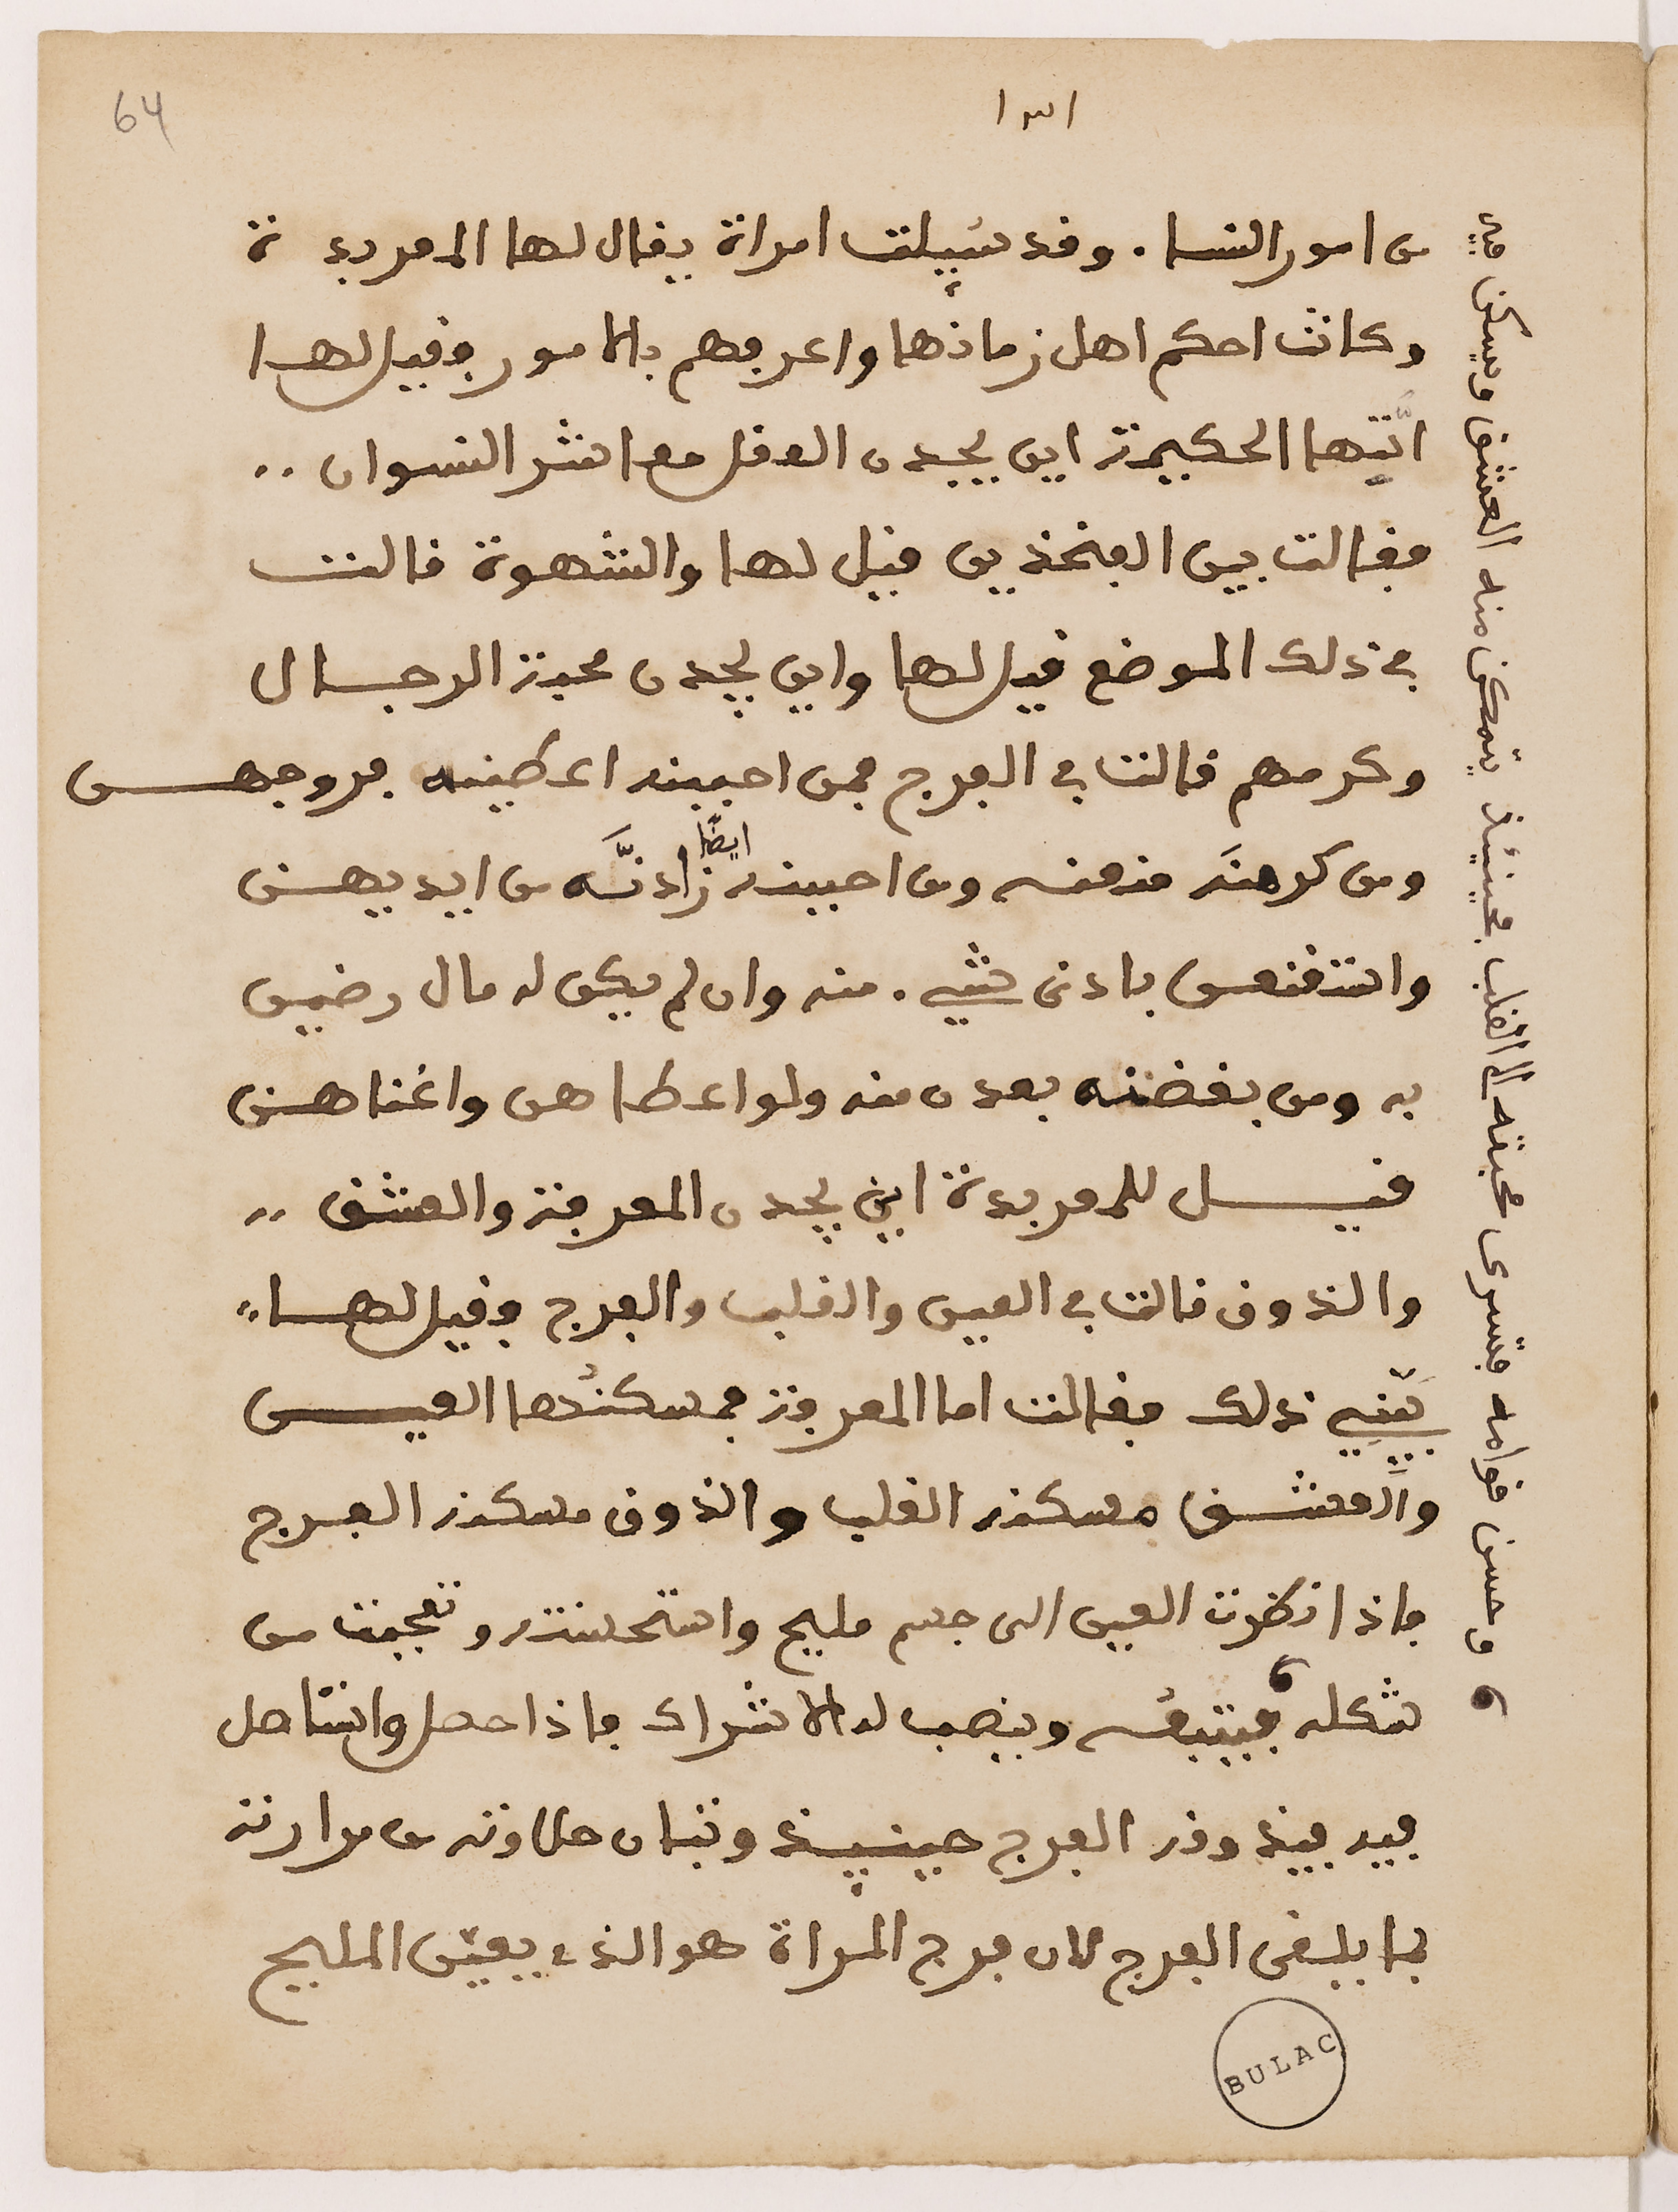 64
من امور النسا. وقد سُيِلت امراة يقال لها المعربدة
وكانت احكم اهل زمانها واعرفهم بالامور وقيل لها
ايّتها الحكيمة اين يجدن العقل معاشر النسوان ..
فقالت بين الفخذين قيل لها والشهوة قالت
في ذلك الموضع قيل لها واين يجدن محبة الرجال
وكرههم قالت في الفرج فمن احببنه اعطينه فروجهن
ومن كرهنَه منعنه ومن احببنه ايضًا زادنَّه من ايديهن
واقتنعن بادنى شيء. منه وان لم يكن له مال رضين
به ومن بغضنه بعدن منه ولو اعطاهن واغناهن
قيل للمعربدة اين يجدن المعرفة والعشق ..
والذوق قالت في العين والقلب والفرج وقيل لها..
بيّني ذلك فقالت اما المعرفة فمسكنُها العين
والعشق مسكنه القلب والذوق مسكنه الفرج
فاذا نظرت العين الى جسم مليح واستحسنته وتعجبت من
شكله 6 فيتبعُه وينصب له الاشراك فاذا حصل وانتاصل
فيه فيذوقه الفرج حينيِذ وتبان حلاوته من مرارته
بما يلقى الفرج لان فرج المراة هو الذي يعيّن المليح
6 وحسن قوامه فتسرى محبته الى القلب فحينئذ يتمكن منه العشق ويسكن فيه
BULAC